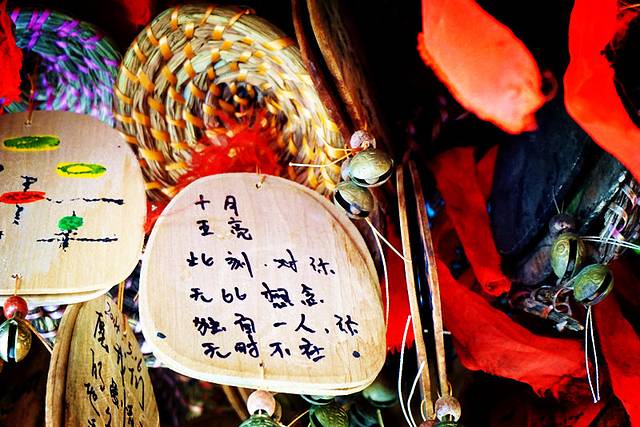 十月
王亮
此刻.对你.
无比想念
独有一人,你
无时不在